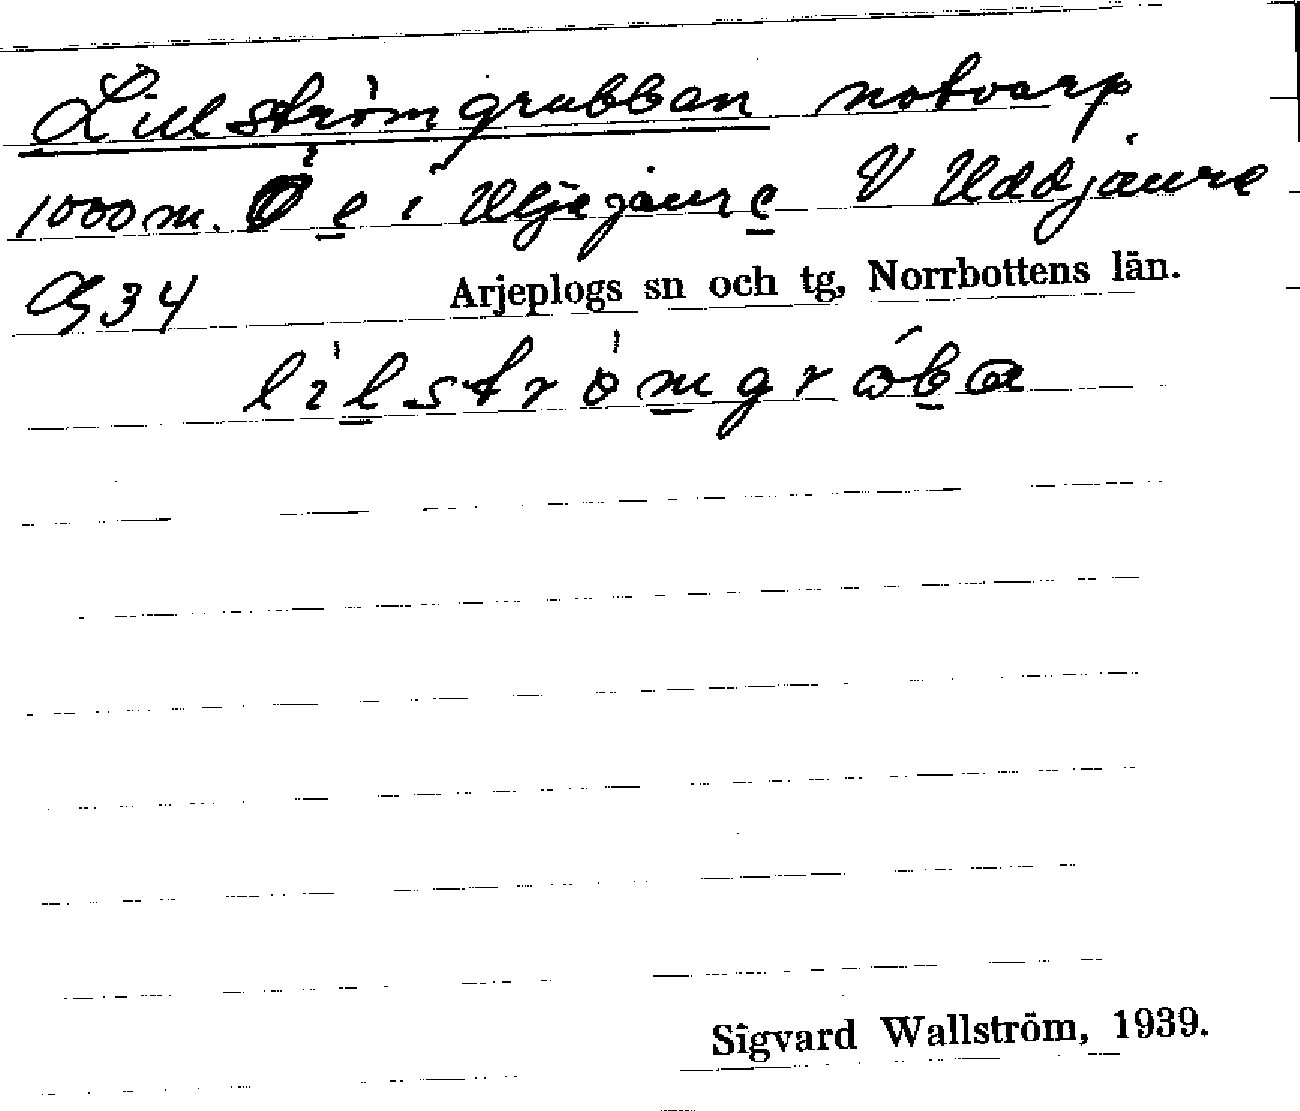 Lillströmgrubban notvarp
1000 m. Ö e i Uljejaure V Uddjaure
G 34 Arjeplogs sn och tg, Norrbottens län.
lilströmgròba
Sigvard Wallström, 1939.